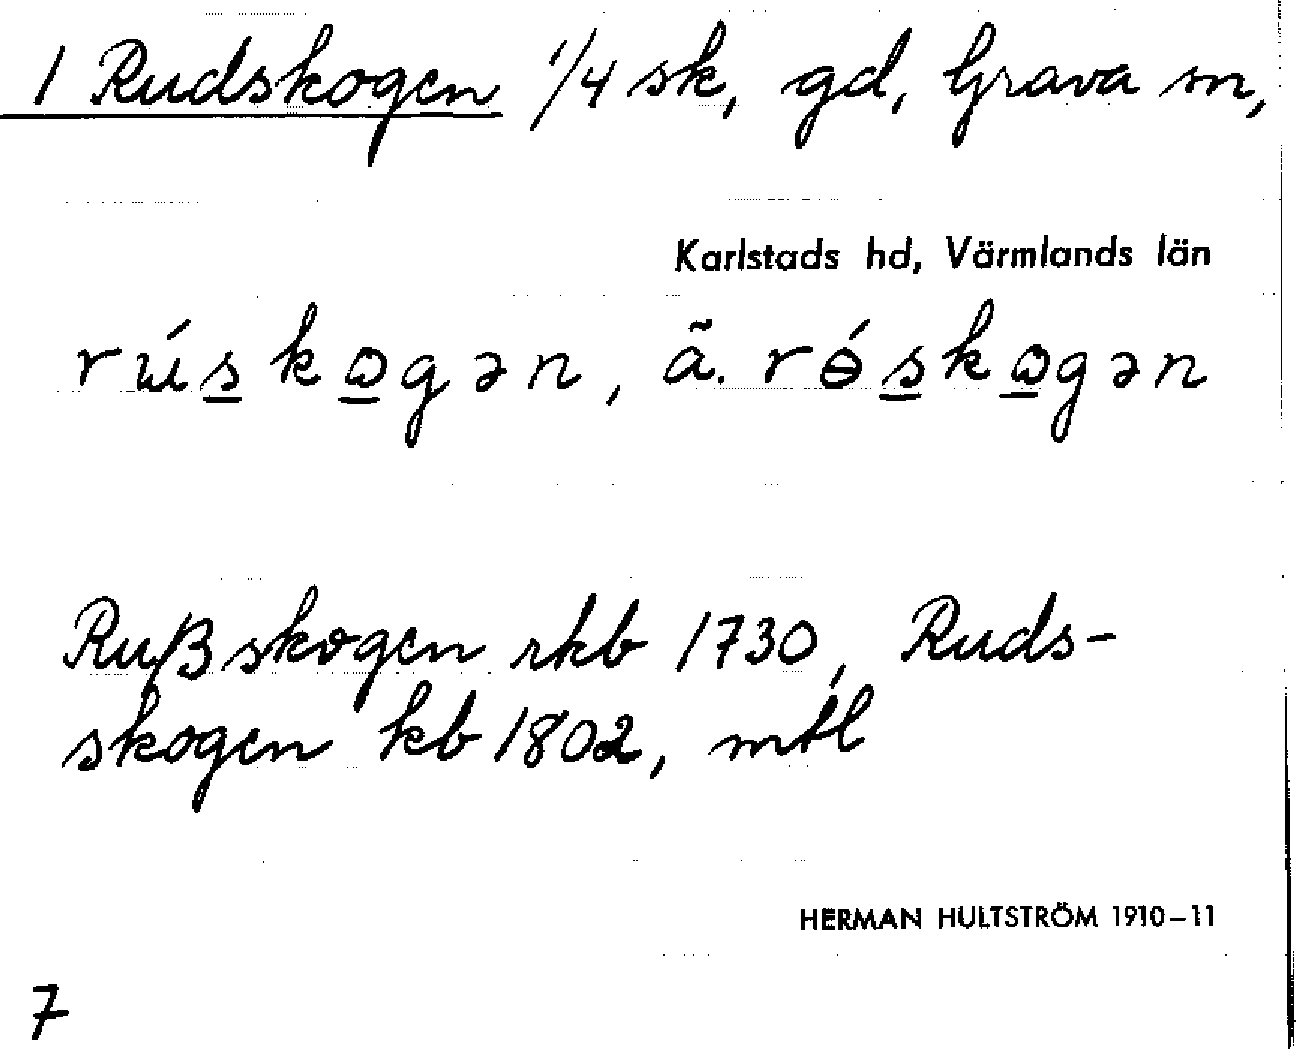 1 Rudskogen 1/4 sk, gd, Grava sn,
Karlstads hd, Värmlands län
rɯ́s̲kꞷ̲gən, ä̃. rɵ́s̲kꞷ̲gən
Rußskogen rkb 1730, Ruds-
skogen kb 1802, mtl
HERMAN HULTSTRÖM 1910–11
7